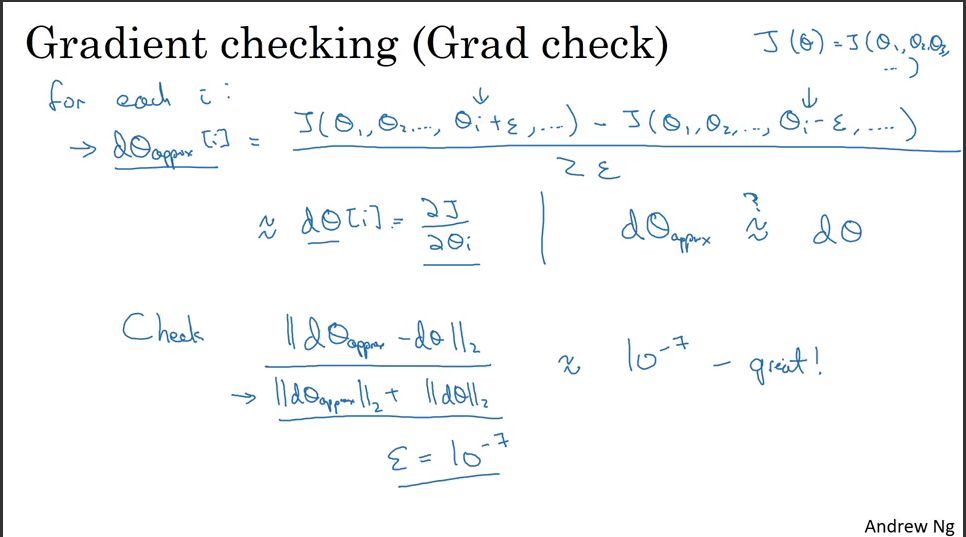 Gradient checking (Grad check)
J(θ) = J(θ₁, θ₂, θ₃, ...)
for each i:
→ dθapprox[i] = J(θ₁, θ₂, ..., θᵢ+ε, ...) - J(θ₁, θ₂, ..., θᵢ-ε, ...) / 2ε
≈ dθ[i] = ∂J/∂θᵢ | dθapprox ≈? dθ
Check ||dθapprox - dθ||₂ / ||dθapprox||₂ + ||dθ||₂ ≈ 10⁻⁷ - great!
ε = 10⁻⁷
Andrew Ng